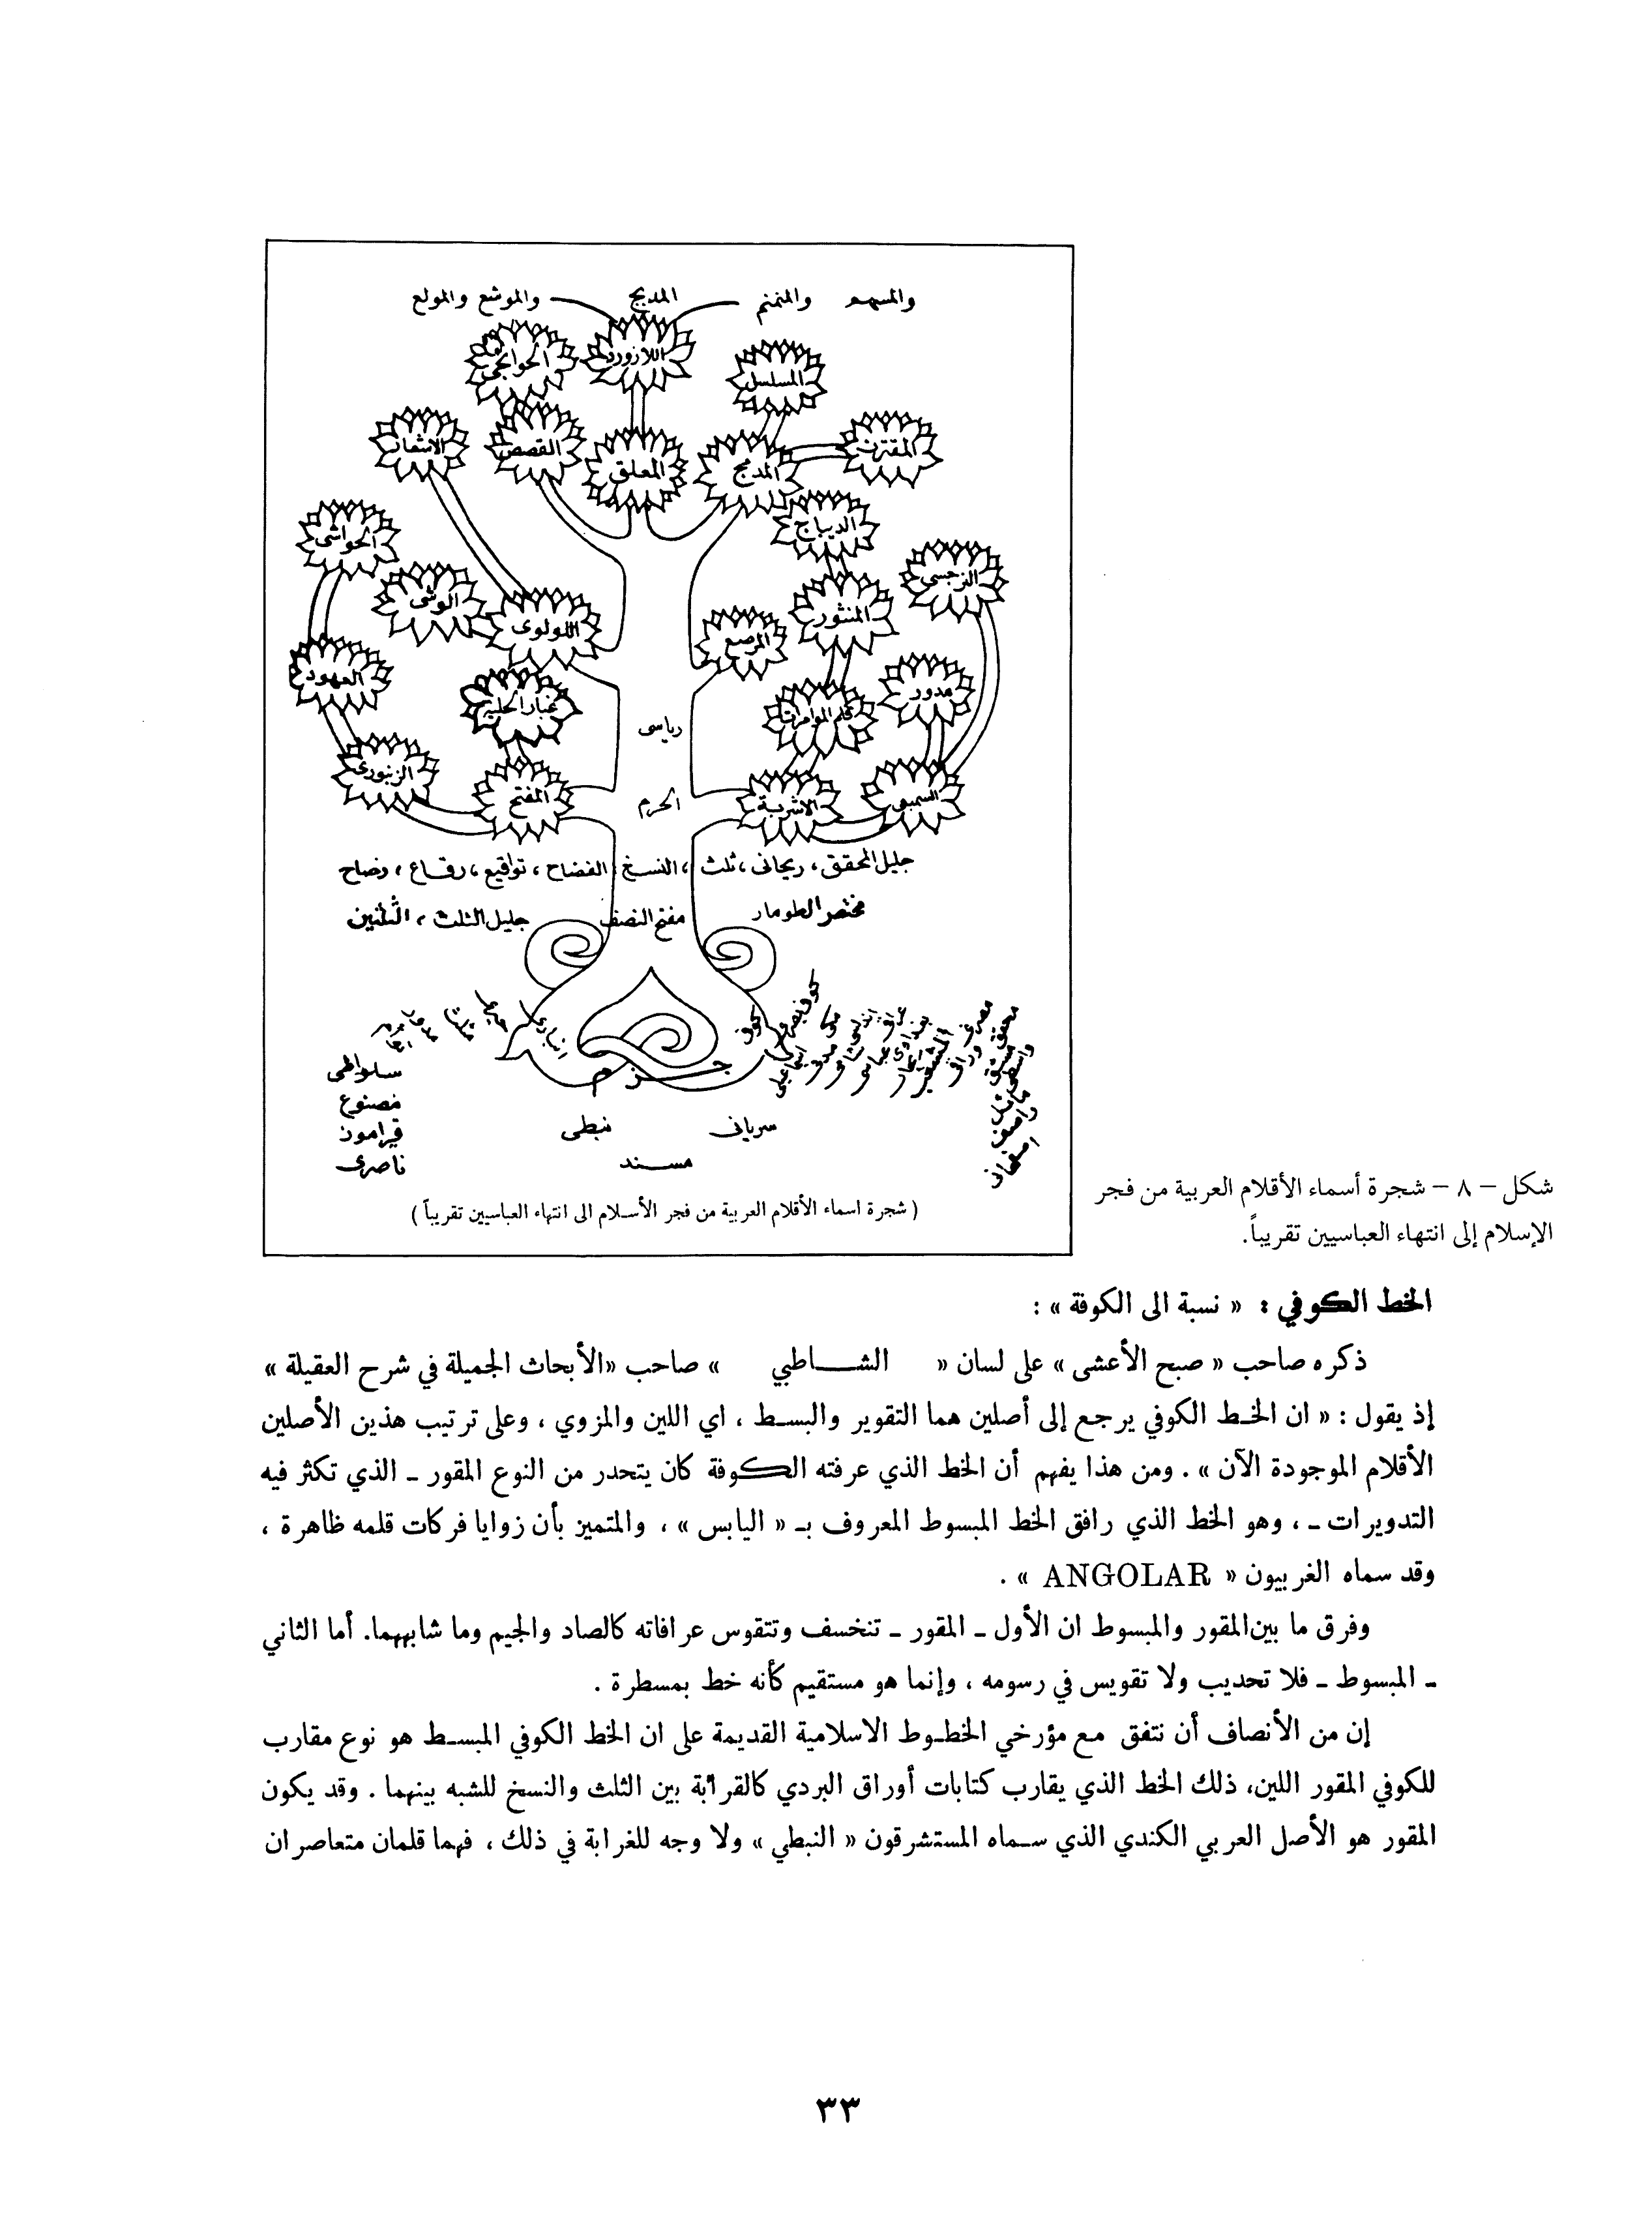 والمسهم والمنمنم المدبج والموشع والمولع
الحوائجي اللازورد
المسلسل
الاشعار القصص المعلق المدمج المقترن
الحواشى الديباج
الوشى اللولوى المنثور النرجسى
العهود المرصع
غبار الحلبه رياسى قلم الموامرات مدور
الزنبورى المفتح الحرم الاشربة السميعى
جليل المحقق، ريحانى، ثلث، النسخ الفضاح، تواقيع، رقاع، رضاح
مختصر الطومار مفتح النصف جليل الثلث، الثلثين
سلواطى
مصنوع
قيراموز
ناصرى
جزم
سريانى نبطى
مسند
( شجرة اسماء الأقلام العربية من فجر الأسلام الى انتهاء العباسيين تقريباً )
شكل – ٨ – شجرة أسماء الأقلام العربية من فجر
الإسلام إلى انتهاء العباسيين تقريباً.
الخط الكوفي : « نسبة الى الكوفة » :
ذكره صاحب « صبح الأعشى » على لسان « الشاطبي » صاحب «الأبحاث الجميلة في شرح العقيلة »
إذ يقول : « ان الخط الكوفي يرجع إلى أصلين هما التقوير والبسط ، اي اللين والمزوي ، وعلى ترتيب هذين الأصلين
الأقلام الموجودة الآن » . ومن هذا يفهم أن الخط الذي عرفته الكوفة كان يتحدر من النوع المقور ـ الذي تكثر فيه
التدويرات ـ ، وهو الخط الذي رافق الخط المبسوط المعروف بـ « اليابس » ، والمتميز بأن زوايا فركات قلمه ظاهرة ،
وقد سماه الغربيون « ANGOLAR » .
وفرق ما بين المقور والمبسوط ان الأول ـ المقور ـ تنخسف وتتقوس عرافاته كالصاد والجيم وما شابههما. أما الثاني
ـ المبسوط ـ فلا تحديب ولا تقويس في رسومه ، وإنما هو مستقيم كأنه خط بمسطرة .
إن من الأنصاف أن نتفق مع مؤرخي الخطوط الاسلامية القديمة على ان الخط الكوفي المبسط هو نوع مقارب
للكوفي المقور اللين، ذلك الخط الذي يقارب كتابات أوراق البردي كالقرابة بين الثلث والنسخ للشبه بينهما . وقد يكون
المقور هو الأصل العربي الكندي الذي سماه المستشرقون « النبطي » ولا وجه للغرابة في ذلك ، فهما قلمان متعاصران
٣٣